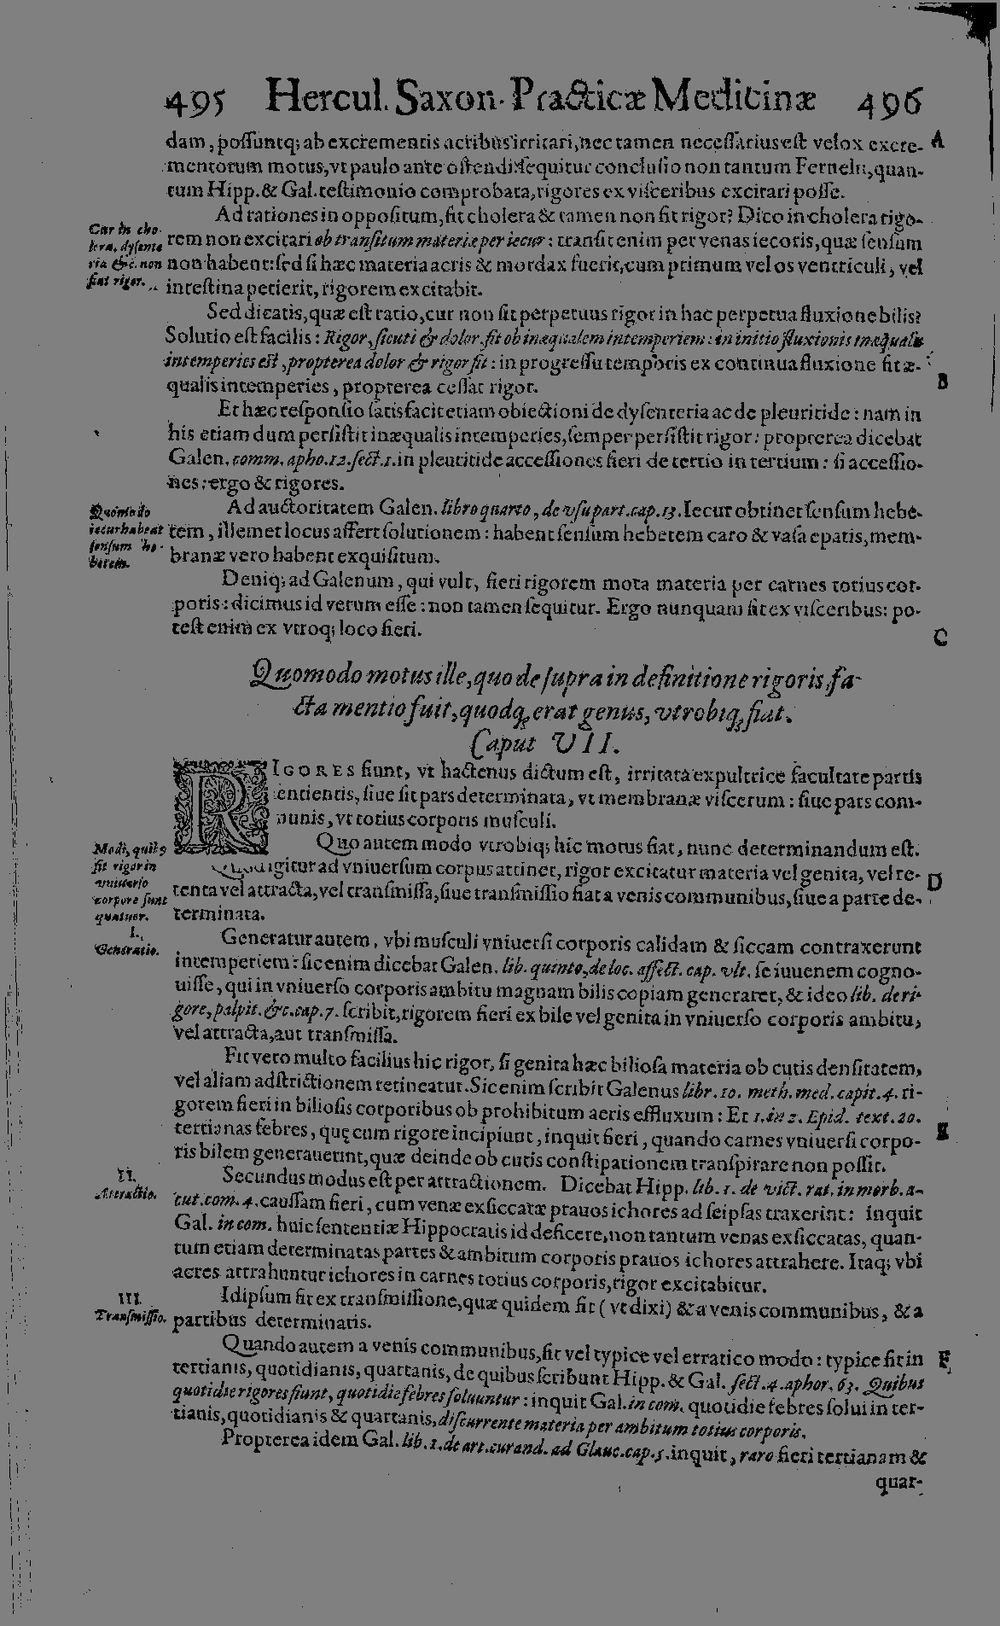 495 Hercul. Saxon. Practicæ Medicinæ 496
dam, possuntq; ab excrementis acribus irritari, nec tamen necessarius est velox excre- A
mentorum motus, vt paulo ante ostendi: sequitur conclusio non tantum Fernelii, quan-
tum Hipp. & Gal. testimonio comprobata, rigores ex visceribus excitari posse.
Ad rationes in oppositum, fit cholera & tamen non fit rigor? Dico in cholera rigo-
Cur in cho-
lera, dysente
ria &c. non
fiat rigor.
rem non excitari ob transitum materiæ per iecur: transit enim per venas iecoris, quæ sensum
non habent: sed si hæc materia acris & mordax fuerit, cum primum vel os ventriculi, vel
intestina petierit, rigorem excitabit.
Sed dicatis, quæ est ratio, cur non fit perpetuus rigor in hac perpetua fluxione bilis?
Solutio est facilis: Rigor, sicuti & dolor fit ob inæqualem intemperiem: in initio fluxionis inæqualis
intemperies est, propterea dolor & rigor fit: in progressu temporis ex continua fluxione fit æ-
qualis intemperies, propterea cessat rigor. B
Et hæc responsio satisfacit etiam obiectioni de dysenteria ac de pleuritide: nam in
his etiam dum persistit inæqualis intemperies, semper persistit rigor: propterea dicebat
Galen. comm. apho. 12. sect. 1. in pleuritide accessiones fieri de tertio in tertium: si accessio-
nes: ergo & rigores.
Ad auctoritatem Galen. libro quarto, de vsu part. cap. 13. Iecur obtinet sensum hebe-
Quomodo
iecur habeat
sensum he-
betem.
tem, illemet locus affert solutionem: habent sensum hebetem caro & vasa epatis, mem-
branæ vero habent exquisitum.
Deniq; ad Galenum, qui vult, fieri rigorem mota materia per carnes totius cor-
poris: dicimus id verum esse: non tamen sequitur. Ergo nunquam fit ex visceribus: po-
test enim ex vtroq; loco fieri. C
Quomodo motus ille, quo de supra in definitione rigoris fa-
cta mentio fuit, quodq; erat genus, vtrobiq; fiat.
Caput VII.
RIGORES fiunt, vt hactenus dictum est, irritata expultrice facultate partis
sentientis, siue sit pars determinata, vt membranæ viscerum: siue pars com-
munis, vt totius corporis musculi.
Quo autem modo vtrobiq; hic motus fiat, nunc determinandum est.
Modi, quib9
fit rigor in
vniuerso
corpore sunt
quatuor.
Quod igitur ad vniuersum corpus attinet, rigor excitatur materia vel genita, vel re- D
tenta vel attracta, vel transmissa, siue transmissio fiat a venis communibus, siue a parte de-
terminata.
I.
Generatio.
Generatur autem, vbi musculi vniuersi corporis calidam & siccam contraxerunt
intemperiem: sic enim dicebat Galen. lib. quinto, de loc. affect. cap. vlt. se iuuenem cogno-
uisse, qui in vniuerso corporis ambitu magnam bilis copiam generaret, & ideo lib. de ri-
gore, palpit. &c. cap. 7. scribit, rigorem fieri ex bile vel genita in vniuerso corporis ambitu,
vel attracta, aut transmissa.
Fit vero multo facilius hic rigor, si genita hæc biliosa materia ob cutis densitatem,
vel aliam adstrictionem retineatur. Sic enim scribit Galenus libr. 10. meth. med. capit. 4. ri-
gorem fieri in biliosis corporibus ob prohibitum aeris effluxum: Et 1. in 2. Epid. text. 20.
tertianas febres, quę cum rigore incipiunt, inquit fieri, quando carnes vniuersi corpo- E
ris bilem generauerint, quæ deinde ob cutis constipationem transpirare non possit.
II.
Attractio.
Secundus modus est per attractionem. Dicebat Hipp. lib. 1. de vict. rat. in morb. a-
cut. com. 4. caussam fieri, cum venæ exsiccatæ prauos ichores ad seipsas traxerint: inquit
Gal. in com. huic sententiæ Hippocratis id deficere, non tantum venas exsiccatas, quan-
tum etiam determinatas partes & ambitum corporis prauos ichores attrahere. Itaq; vbi
acres attrahuntur ichores in carnes totius corporis, rigor excitabitur.
III.
Transmissio.
Idipsum fit ex transmissione, quæ quidem fit (vt dixi) & a venis communibus, & a
partibus determinatis.
Quando autem a venis communibus, fit vel typice vel erratico modo: typice fit in F
tertianis, quotidianis, quartanis, de quibus scribunt Hipp. & Gal. sect. 4. aphor. 63. Quibus
quotidie rigores fiunt, quotidie febres soluuntur: inquit Gal. in com. quotidie febres solui in ter-
tianis, quotidianis & quartanis, discurrente materia per ambitum totius corporis.
Propterea idem Gal. lib. 1. de art. curand. ad Glauc. cap. 5. inquit, raro fieri tertianam &
quar-